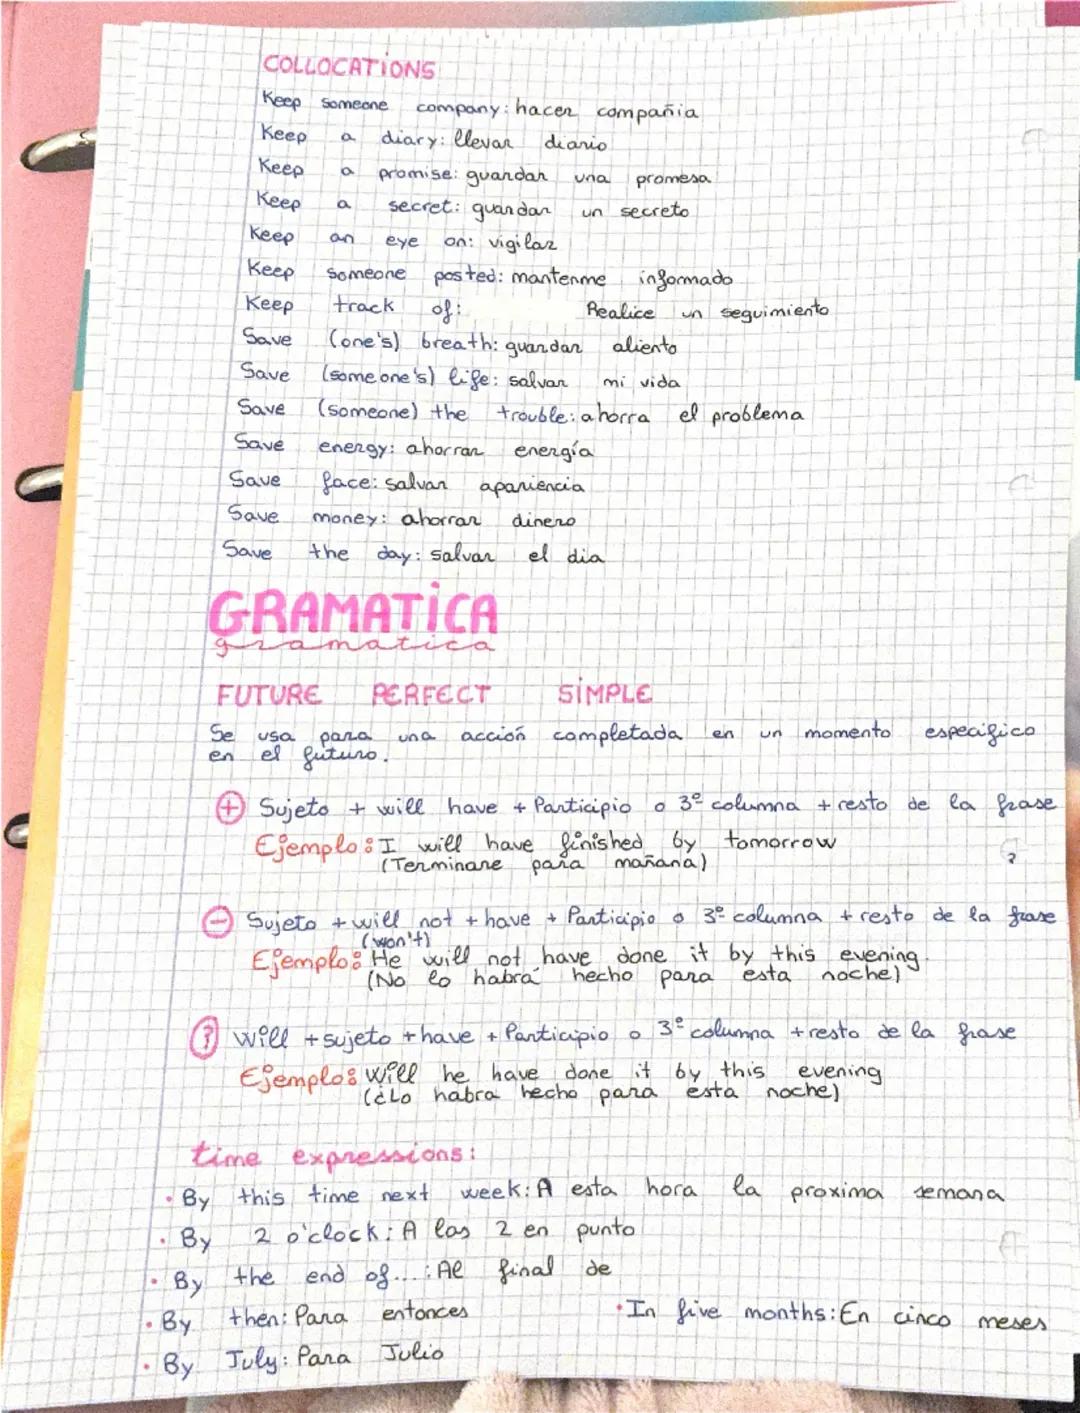 COLLOCATIONS
Keep someone company: hacer compañia
Keep a diary: llevar diario
Keep a promise: guardar una promesa
Keep a secret: guardar un secreto
Keep an eye on: vigilar
Keep someone posted: mantenme informado
Keep track of: Realice un seguimiento
Save (one's) breath: guardar aliento
Save (someone's) life: salvar mi vida
Save (someone) the trouble: ahorra el problema
Save energy: ahorrar energía
Save face: salvar apariencia
Save money: ahorrar dinero
Save the day: salvar el dia
GRAMATICA
gramatica
FUTURE PERFECT SIMPLE
Se usa para una acción completada en un momento especifico
en el futuro.
+ Sujeto + will have + Participio o 3º columna + resto de la frase
Ejemplo: I will have finished by tomorrow
(Terminare para mañana)
- Sujeto + will not + have + Participio o 3º columna + resto de la frase
(won't)
Ejemplo: He will not have done it by this evening.
(No lo habrá hecho para esta noche)
? Will + sujeto + have + Participio o 3º columna + resto de la frase
Ejemplo: Will he have done it by this evening
(¿Lo habra hecho para esta noche)
time expressions:
• By this time next week: A esta hora la proxima semana
• By 2 o'clock: A las 2 en punto
• By the end of...: Al final de
• By then: Para entonces
• In five months: En cinco meses
• By July: Para Julio